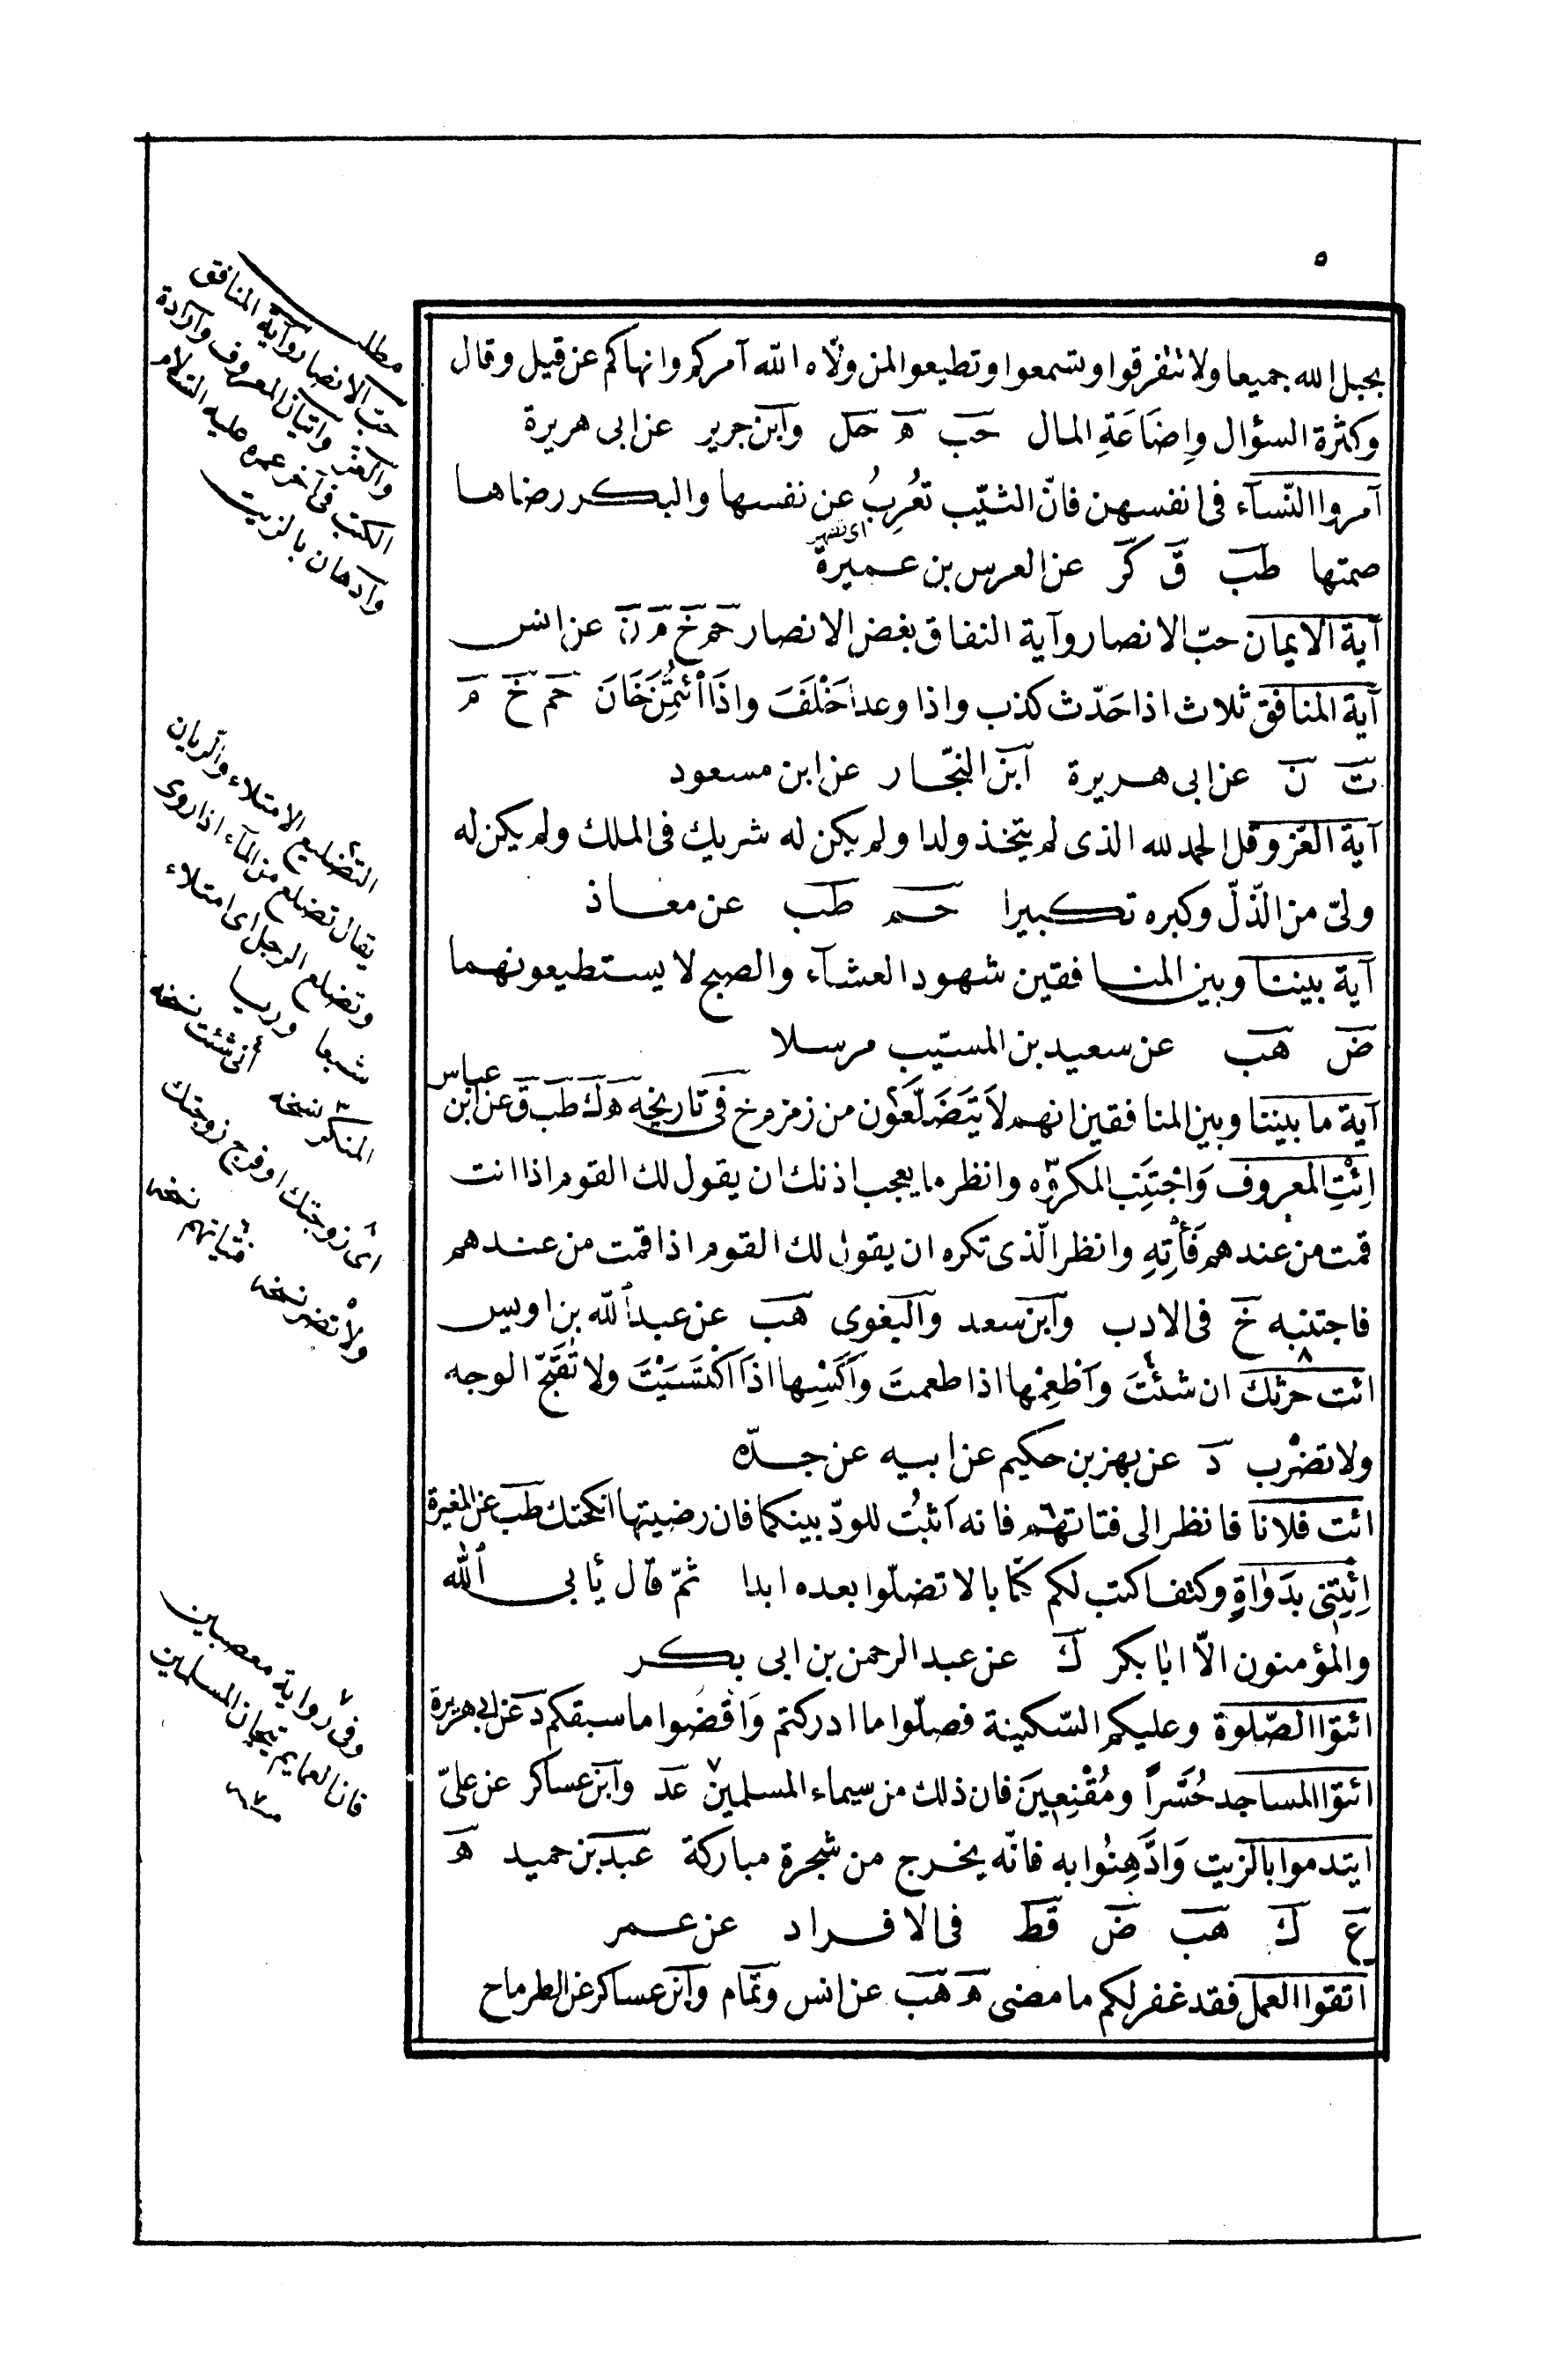 ٥
بحبل الله جميعا ولا تتفرقوا وتسمعوا وتطيعوا لمن ولّاه الله آمركم وانهاكم عن قيل وقال
وكثرة السؤال وإضَاعَةِ المال حب ه حل وابن جرير عن ابى هريرة
آمروا النّسآء فى انفسهن فانّ الثيّب تُعْرِبُ عن نفسها والبكر رضاها
اى تظهر
صمتها طب ق كر عن العرس بن عميرة
آية الايمان حبّ الانصار وآية النفاق بغض الانصار حم خ م ن عن انس
آية المنافق ثلاث اذا حَدّث كذب واذا وعد اَخْلَفَ واذَا اُئْتُمِنَ خَانَ حم خ م
ت ن عن ابى هريرة ابن النجّار عن ابن مسعود
آية العّز وقل الحمد لله الذى لم يتخذ ولدا ولم يكن له شريك فى الملك ولم يكن له
ولىّ من الذّلّ وكبره تكبيرا حم طب عن معاذ
آية بيننا وبين المنافقين شهود العشآء والصبح لا يستطيعونهما
ض هب عن سعيد بن المسيّب مرسلا
آية ما بيننا وبين المنافقين انهم لاَ يَتَضَلَّعَوُن من زمزم خ فى تاريخه ه ك طب ق عن ابن
عباس
اِئْتِ المعروف وَاجْتَنِبِ المكروّه وانظر ما يعجب اذنك ان يقول لك القوم اذا انت
قمت من عندهم فَأْتِهِ وانظر الّذى تكره ان يقول لك القوم اذا قمت من عندهم
فاجتنبه خ فى الادب وابن سعد والبغوى هب عن عبد الله بن اويس
ائت حرثكَ ٨ ان شئتَ ٤ وَاَطْعِمْها اذا طعمتَ وَاَكْسِها اذَا اكْتَسَيْتَ ولا تُقَبِّحْ الوجه
ولا تضْرب د عن بهز بن حكيم عن ابيه عن جدّه
ائت فلانا فانظر الى فتاتهم فانه اَثبتُ للودّ بينكما فان رضيتها انكحتك طب عن المغيرة
اِئْتِنى بدَوَاةٍ وكتف اكتب لكم كتابا لا تضلّوا بعده ابدا ثمّ قال يأبى الله
والمؤمنون الاّ ابا بكر ك عن عبد الرحمن بن ابى بكر
ائتوا الصّلوة وعليكم السّكينة فصلّوا ما ادركتم وَاقْضُوا ما سبقكم د عن ابى هريرة
ائتوا المساجد حُسَّراً ومُقْنِعِينَ فان ذلك من سيماء المسلمين ٧ عد وابن عساكر عن علىّ
ايتدموا بالزيت وَادَّهِنُوا به فانّه يخرج من شجرة مباركة عبد بن حميد ه
ع ك هب ض قط فى الافراد عن عمر
اتقوا العمل فقد غفر لكم ما مضى ه هب عن انس وتمّام وابن عساكر عن الطرماح
مطلب
حبّ الانصار وآية المنافق
والعّز واتيان المعروف وارادة
الكتب فى آخر عمره عليه السّلام
وادهان بالزيت
٢ التضليع الامتلاء والّريان
يقال تضلع من المآء اذا روى
وتضلع الرجل اى امتلاء
شبعا وريا
٤ أنى شئت نسخه
٣ المنكر نسخه
٨ اى زوجتك او فرج زوجتك
٦ فتياتهم نسخه
٥ ولا تضر نسخه
٧ وفى رواية معصبين
فان العمايم تيجان المسلمين